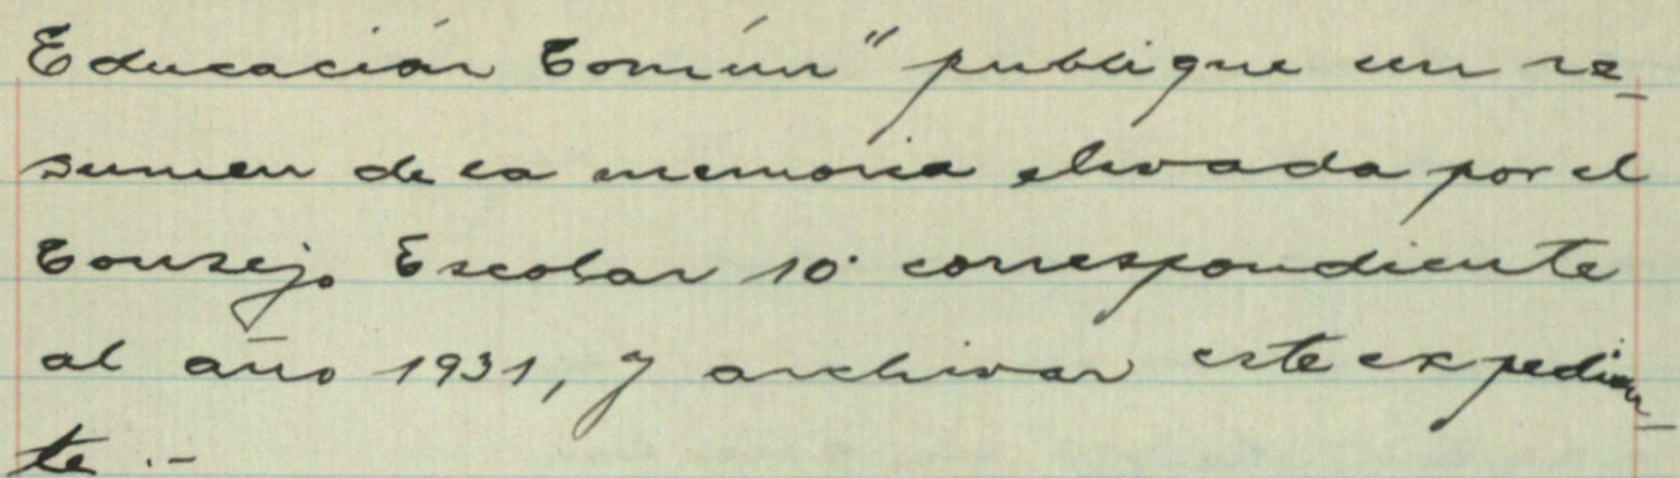 Educación Común" publique un re-
sumen de la memoria elevada por el
Consejo Escolar 10° correspondiente
al año 1931, y archivar este expedien-
te.-